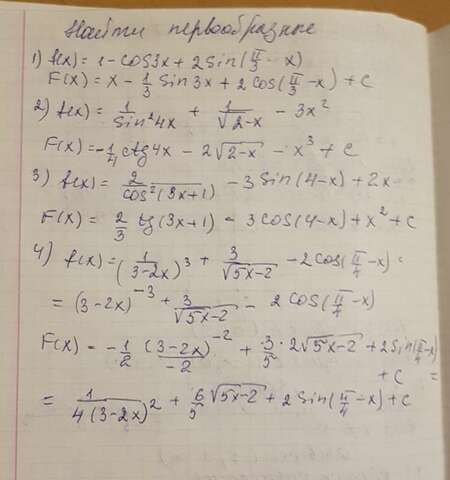 Найти первообразные
1) f(x) = 1 - cos3x + 2sin(π/3 - x)
F(x) = x - 1/3 sin3x + 2cos(π/3 - x) + C
2) f(x) = 1/sin²4x + 1/√(2-x) - 3x²
F(x) = -1/4 ctg4x - 2√(2-x) - x³ + C
3) f(x) = 2/cos²(3x+1) - 3sin(4-x) + 2x
F(x) = 2/3 tg(3x+1) - 3cos(4-x) + x² + C
4) f(x) = (1/(3-2x))³ + 3/√(5x-2) - 2cos(π/4 - x) =
= (3-2x)⁻³ + 3/√(5x-2) - 2cos(π/4 - x)
F(x) = -1/2 (3-2x)⁻²/-2 + 3/5 · 2√(5x-2) + 2sin(π/4 - x)
+ C =
= 1/4(3-2x)² + 6/5 √(5x-2) + 2sin(π/4 - x) + C